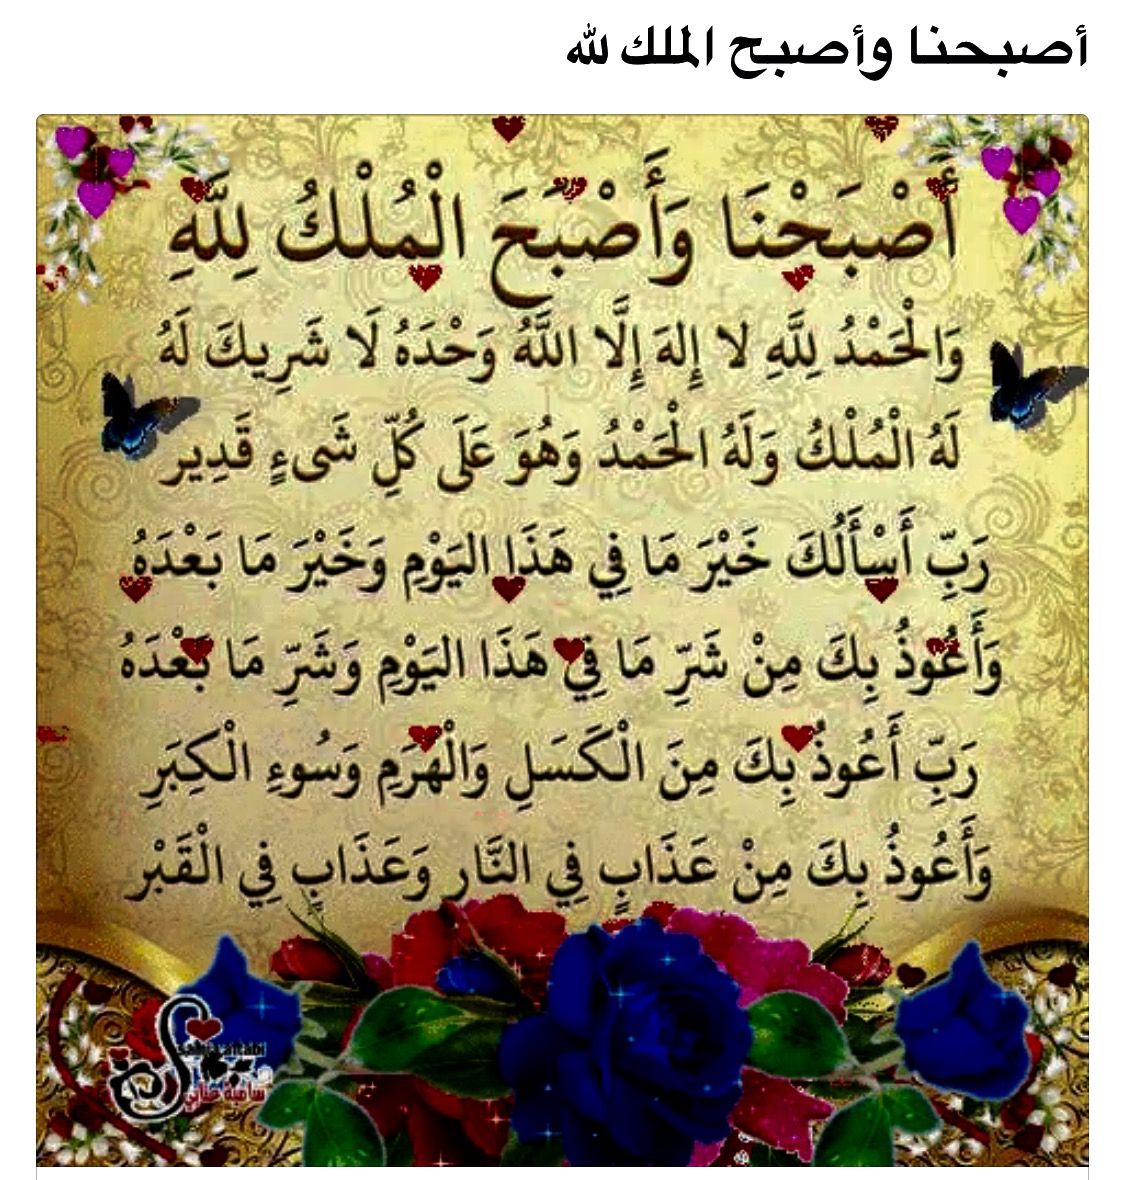 أصبحنا وأصبح الملك لله
أَصْبَحْنَا وَأَصْبَحَ الْمُلْكُ لِلَّهِ
وَالْحَمْدُ لِلَّهِ لا إِلهَ إِلَّا اللَّهُ وَحْدَهُ لَا شَرِيكَ لَهُ
لَهُ الْمُلْكُ وَلَهُ الْحَمْدُ وَهُوَ عَلَى كُلِّ شَىءٍ قَدِير
رَبِّ أَسْأَلُكَ خَيْرَ مَا فِي هَذَا اليَوْمِ وَخَيْرَ مَا بَعْدَهُ
وَأَعُوذُ بِكَ مِنْ شَرِّ مَا فِي هَذَا اليَوْمِ وَشَرِّ مَا بَعْدَهُ
رَبِّ أَعُوذُ بِكَ مِنَ الْكَسَلِ وَالْهَرَمِ وَسُوءِ الْكِبَرِ
وَأَعُوذُ بِكَ مِنْ عَذَابٍ فِي النَّارِ وَعَذَابٍ فِي الْقَبْر